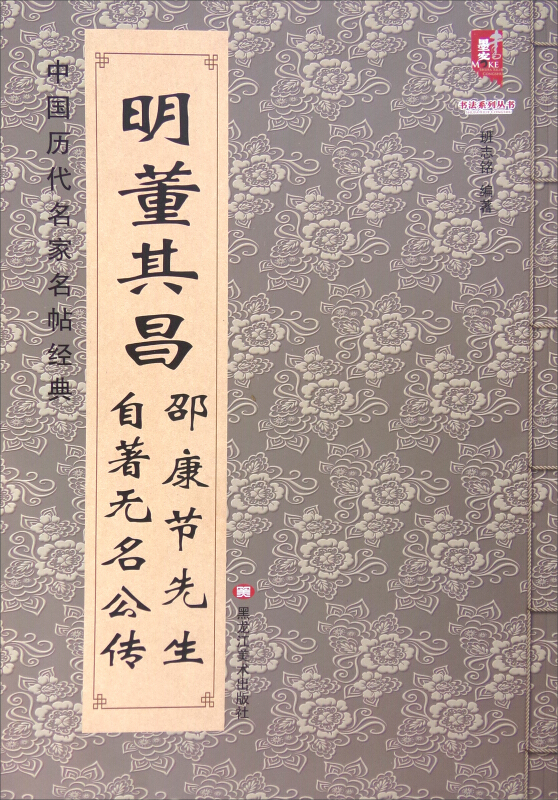 中国历代名家名帖经典
明董其昌
邵康节先生
自著无名公传
墨客
MOKE
书法系列丛书
班志铭 编著
黑龙江美术出版社